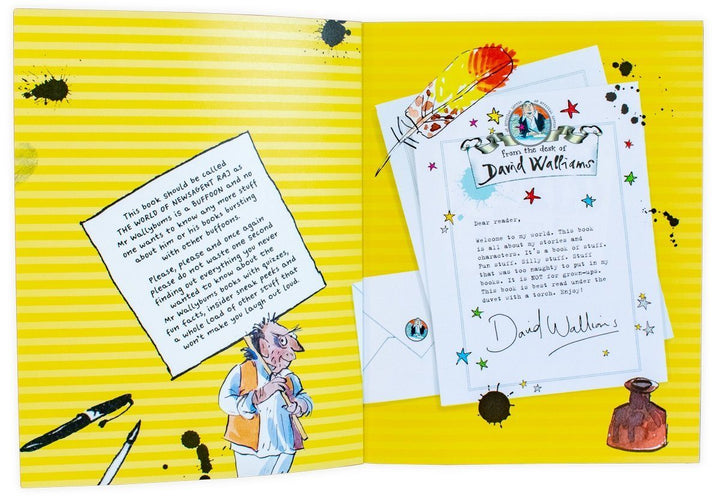 This book should be called
THE WORLD OF NEWSAGENT RAJ as
Mr Wallybums is a BUFFOON and no
one wants to know any more stuff
about him or his books bursting
with other buffoons.
Please, please and once again
please do not waste one second
finding out everything you never
wanted to know about the
Mr Wallybums books with quizzes,
fun facts, insider sneak peeks and
a whole load of other stuff that
won't make you laugh out loud.
from the desk of
David Walliams
Dear reader,
Welcome to my world. This book
is all about my stories and
characters. It's a book of stuff.
Fun stuff. Silly stuff. Stuff
that was too naughty to put in my
books. It is NOT for grown-ups.
This book is best read under the
duvet with a torch. Enjoy!
David Walliams